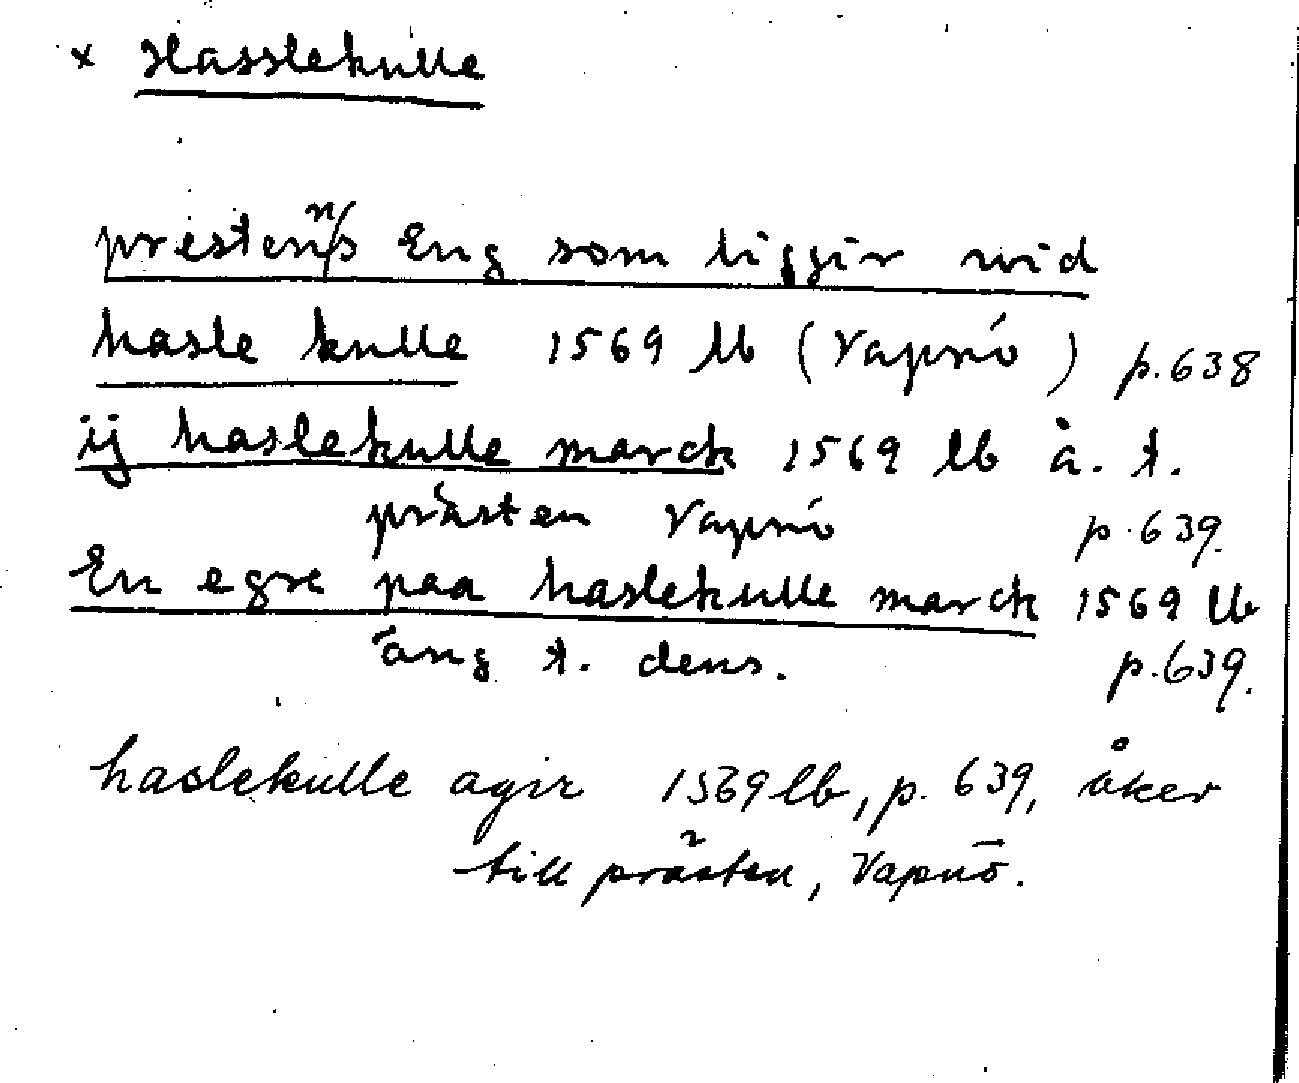 x Hasslekulle
prestenns Eng som liggir wid
hasle kulle 1569 lb (Vapnö) p. 638
ij haslekulle marck 1569 lb å. t.
prästen Vapnö p. 639.
En egre paa haslekulle marck 1569 lb
äng t. dens. p. 639.
haslekulle agir 1569 lb, p. 639, åker
till prästen, Vapnö.